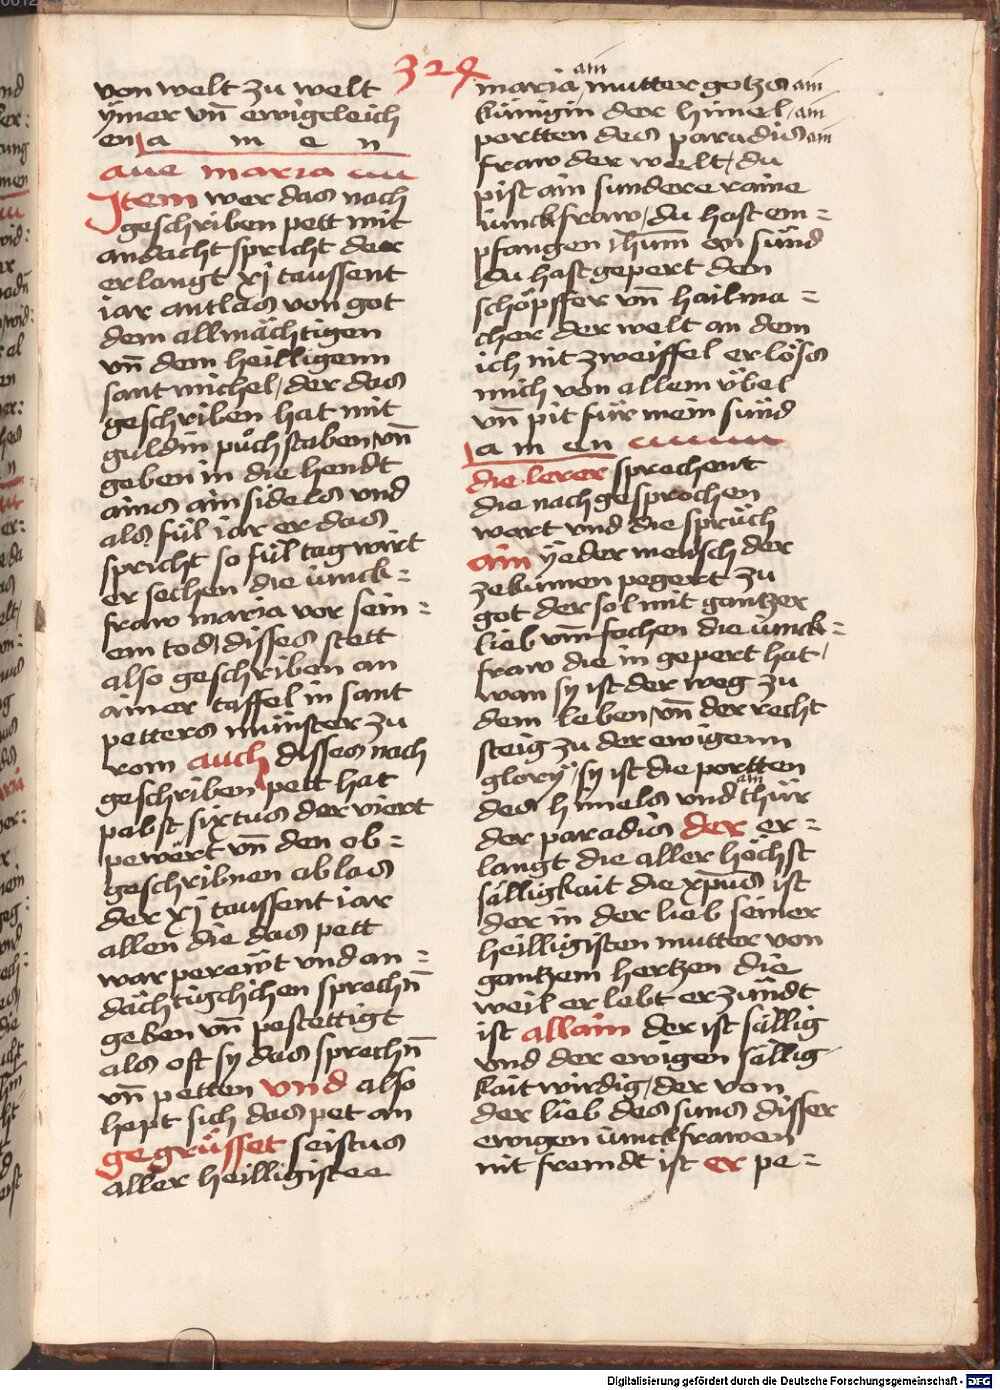 329
von welt zu welt
ÿmer vn̄ ewigeleich
en a m e n
aue maria
Item wer das nach
geschriben pett mit
andacht spricht der
erlangt xj taussent
iar antlas von got
dem allmächtigen
vn̄ dem heilligenn
sant michel / der das
geschriben hat mit
guldin půchstaben vn̄
geben in die hendt
ains ainsidels vnd
als fül iar er das
spricht so fül tag wirt
er sechen die iunck=
fraw maria vor sein=
em tod / disses stett
also geschriben an
ainer taffel in sant
petters münster zu
rom auch disses nach
geschriben pett hat
pabst sixtus der viert
pewërt vn̄ den ob=
geschribnen ablas
der xj taussent iar
allen die das pett
war perewt vnd an=
dächtigchichen sprechn̄
geben vn̄ pestettigt
als oft sy das sprechn̄
vn̄ petten vnd also
hept sich das pet an
gegrüsset seistus
aller heilligistee
maria am mutter gotzes am
künigin der himel / am
portten des paradis am
fraw der welt / du
pist ain sundere raine
iunckfraw / du hast em=
pfangen ihum̄ on sünd
du hast gepert den
schöpffer vn̄ hailma=
cher der welt an dem
ich nit zweiffel erlöss
mich von allem übel
vn̄ pit für mein sünd
a m en
die lerer sprechent
die nach gesprochen
wort vnd die sprüch
ain ÿeder mensch der
zekumen pegert zu
got der sol mit gantzer
lieb vm̄fachen die iunck=
fraw die in gepert hat /
wan sy ist der weg zu
dem leben vn̄ der recht
steig zu der ewigenn
glory / sy ist die portten
des himels vnd am thür
der paradis der er=
langt die aller höchst
sälligkait die xpūs ist
der in der lieb seiner
heilligisten mutter von
gantzem hertzen die
weil er lebt erzündt
ist allain der ist sällig
vnd der ewigen sällig
kait wirdig / der von
der lieb des suns disser
ewigen iunckfrawen
nit fremdt ist er pe=
Digitalisierung gefördert durch die Deutsche Forschungsgemeinschaft - DFG